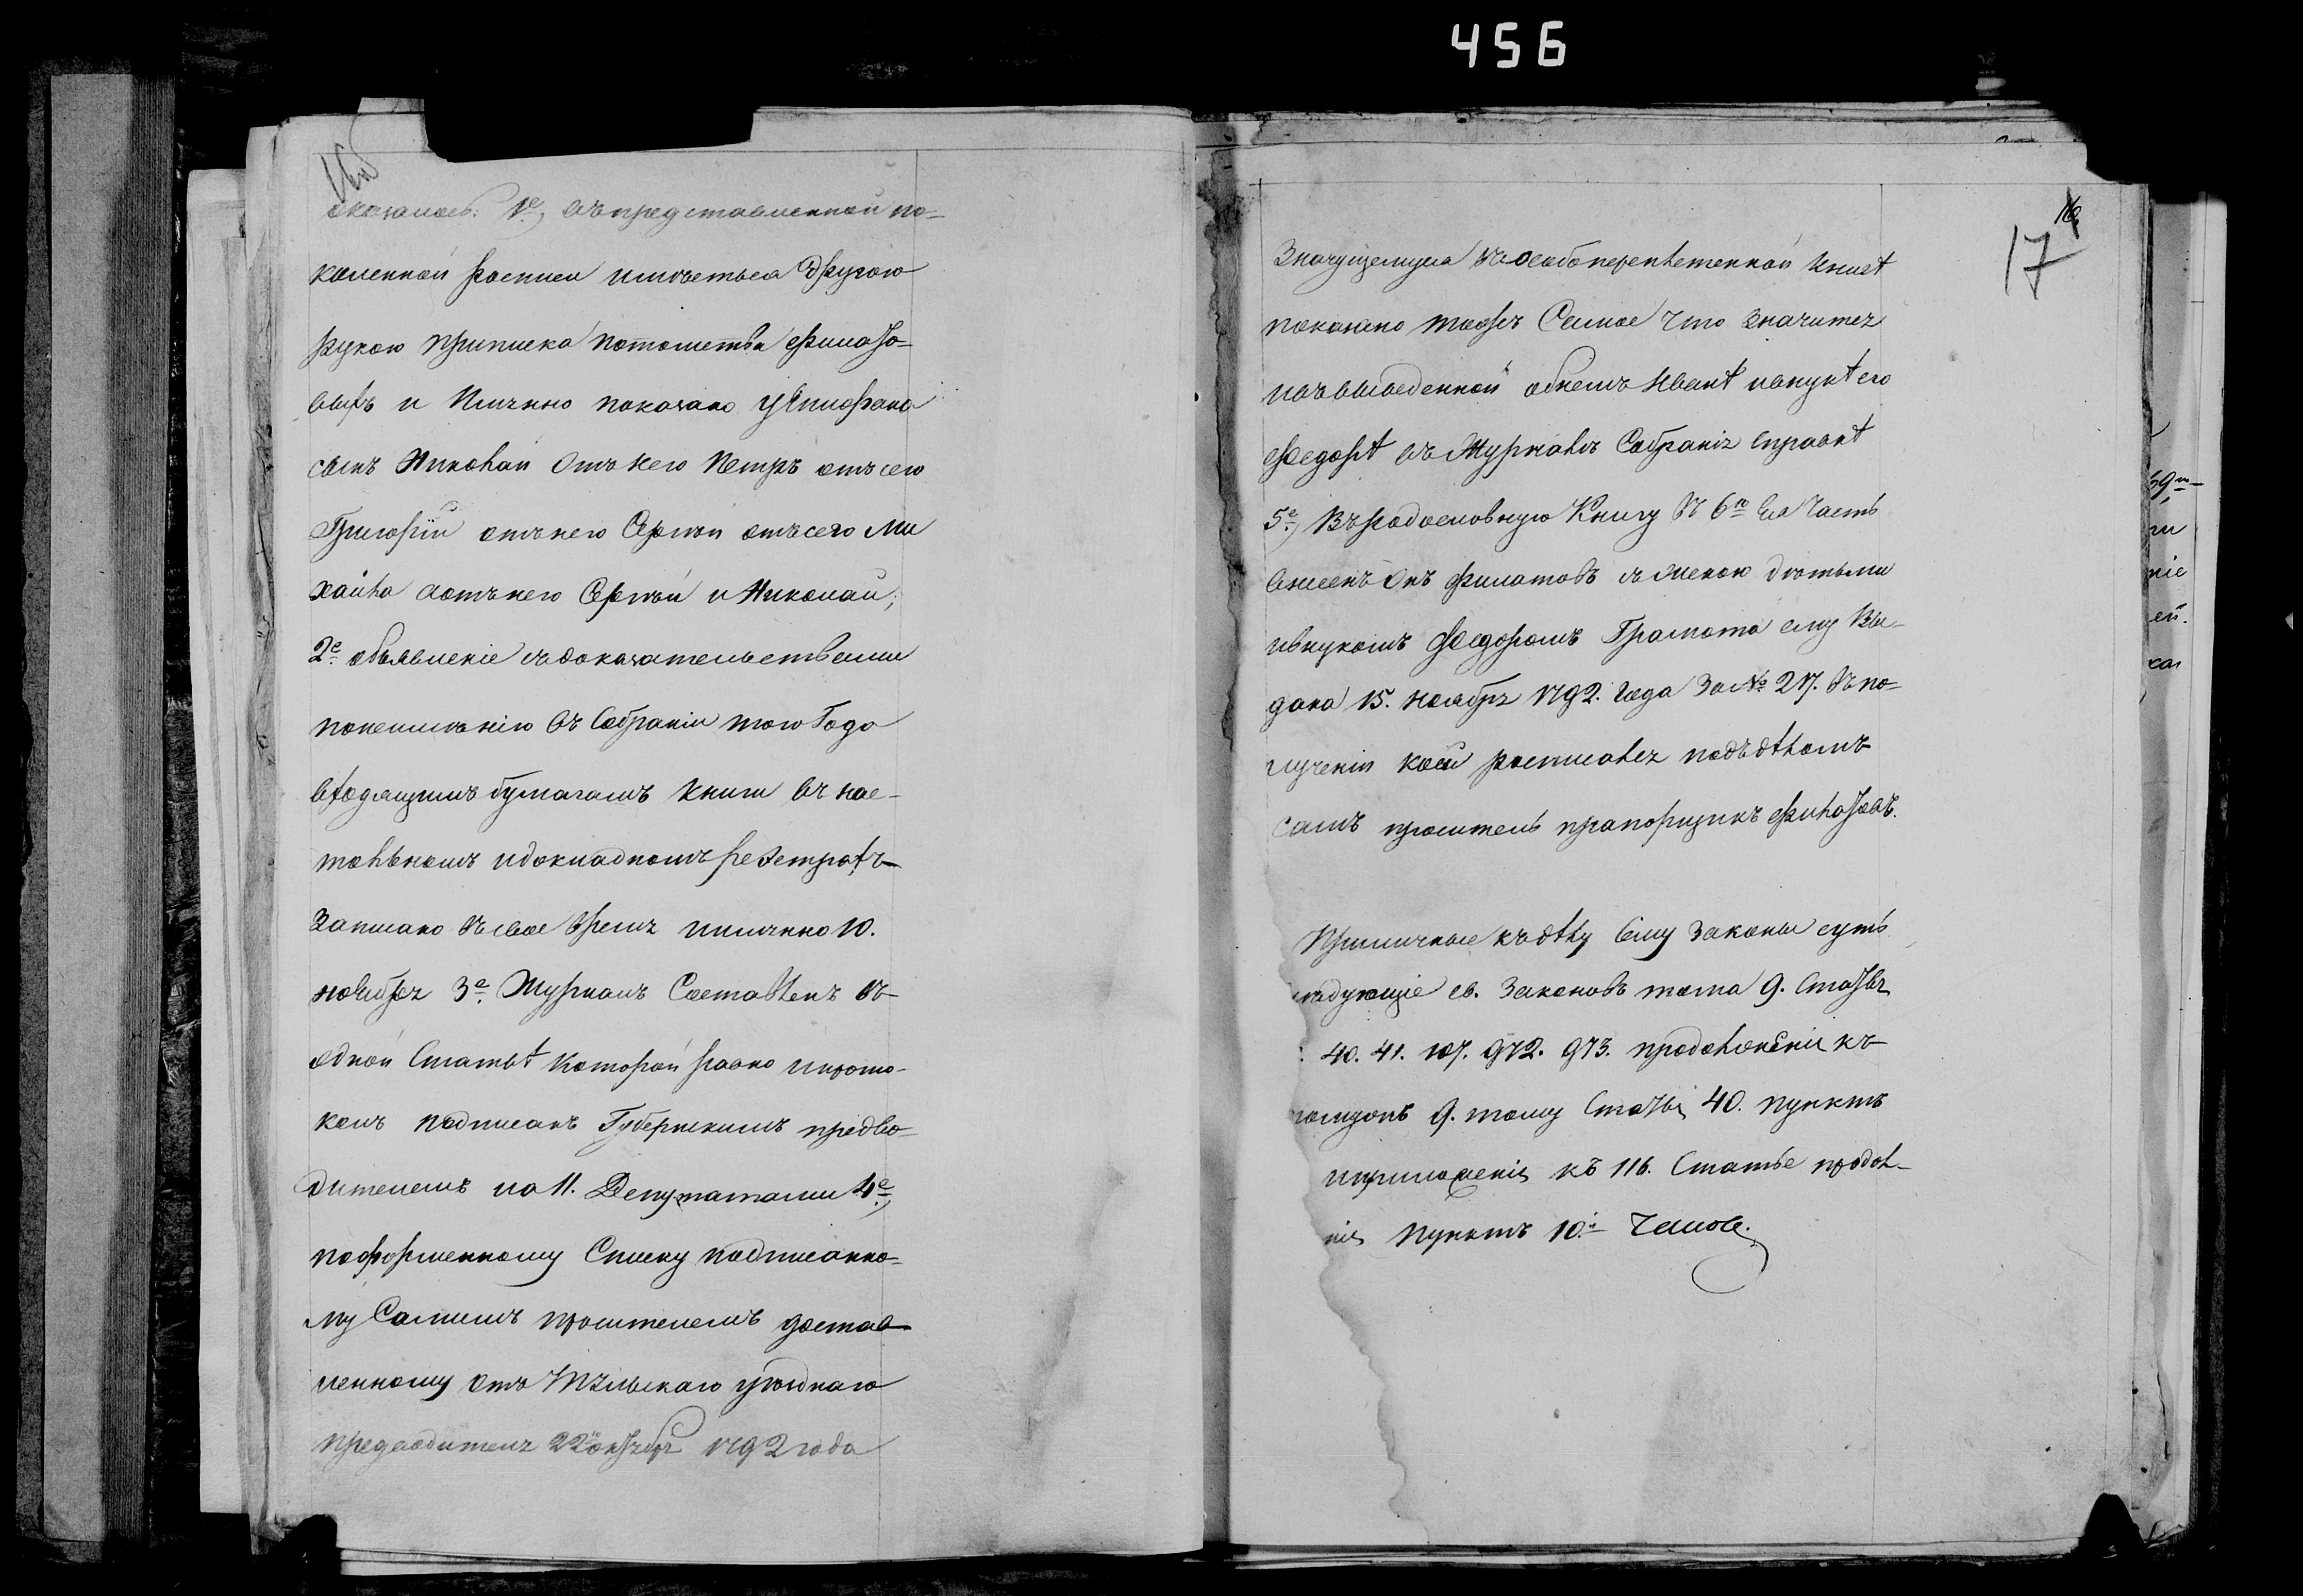 456
оказалось: 1е) въ представленной по-
коленной росписи имѣеться другою
рукою приписка потомства Филато-
выхъ и Имянно показано у Епифана
сынъ Николай Отъ него Петръ отъ сего
Григорiй отъ него Сергѣй отъ сего Ми
хайла а отъ него Сергѣй и Николай;
2е объявленiе съ доказательствами
по вступленiю въ Собранiи того Года
входящимъ бумагамъ Книги въ нас-
тольномъ и докладномъ регстрахъ
Записано въ свое Время имянно 10.
ноября 3е. Журналъ Составленъ въ
одной Статьѣ Которой равно и прото-
колъ подписанъ Губернскимъ предво-
дителемъ и 11. Депутатами 4е)
по форменному Списку подписанно-
му Самимъ просителемъ достав-
ленному отъ Тульскаго уѣзднаго
предводителя 22 октября 1792 года
17
Значущемуся въ особо переплетенной Книгѣ
показано тоже Самое что Значится
и въ выведенной объ немъ Женѣ и внукѣ его
Федорѣ въ Журналѣ Собранiя справкѣ
5е) Въ родословную Книгу въ 6ю Ея Часть
внесенъ Онъ Филатовъ съ женою дѣтьми
и внукомъ Федоромъ Грамота ему Вы-
дана 15. ноября 1792. Года За № 217. въ по-
лученiи коей росписался подъ дѣломъ
самъ проситель прапорщикъ Филатовъ.
Приличные къ дѣлу Сему Законы суть
слѣдующiе св. Законовъ тома 9. Статьи
40. 41. 107. 972. 973. продолженiя къ
9. тому Статьи 40. пунктъ
приложенiя къ 116. Статье продол-
нiя пунктъ 10.й